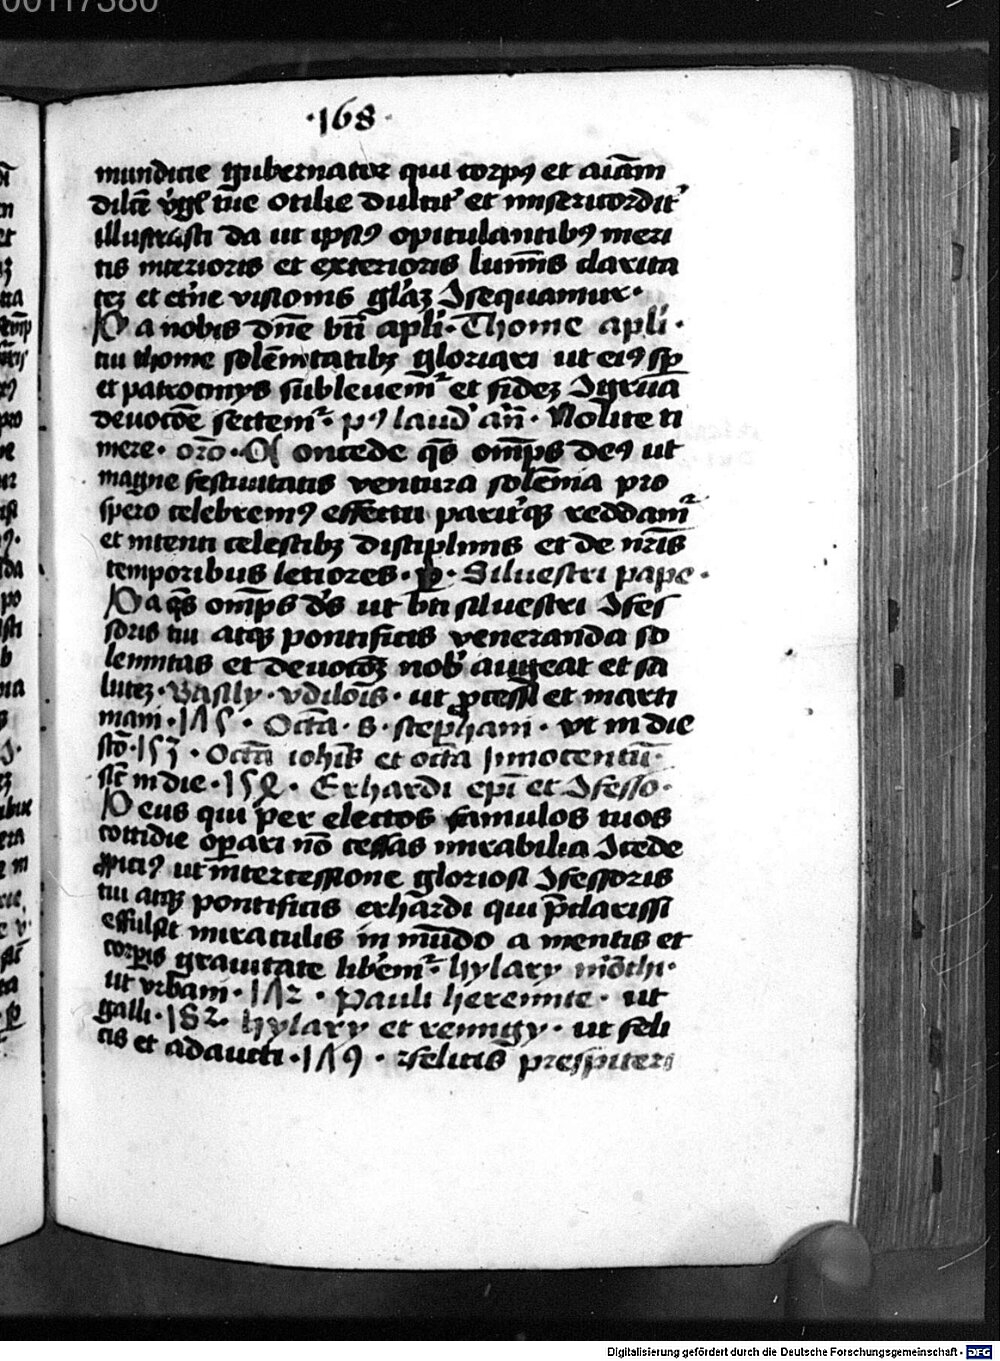 00117380
·168·
mundicie gubernator qui corpꝯ et aīam
dilcē v̓gꝭ tue otilie dulcit᷑ et misericordit᷑
illustrasti da ut ipsiꝯ opitulantibꝯ meri
tis interioris et exterioris luminis clarita
teꝫ et et̓ne visionis gl̄aꝫ ꝯsequamur·
Da nobis dn̄e bt̄i apl̄i· Thome apl̄i·
tui thome solēnitatibꝫ gloriari ut eiꝯ sꝑ
et patrocinys subleuem᷑ et fideꝫ ꝯgrua
deuocōe sectem᷑· pꝯ laud᷑ an̄· Nolite ti
mere· oro· Concede qs̄ omp̄s deꝯ ut
magne festiuitatis ventura solēnia pro
spero celebremꝯ effectu parit᷑qꝫ reddam᷑
et intenti celestibꝫ disciplinis et de nr̄is
temporibus letiores· ꝑ· Siluestri pape·
Da qs̄ omp̄s ds̄ ut bt̄i siluestri ꝯfes
soris tui atqꝫ pontificis veneranda so
lennitas et deuocōeꝫ nob᷑ augeat et sa
luteꝫ· Basily· vdilōis· ut ꝓcessi et marti
mani·1Λ5· Octa· S· stephani· vt in die
scō·153· Octā ioh̄is et octā Innocentiū·
sicut in die·158· Erhardi epī et ꝯfesso·
Deus qui per electos famulos tuos
cottidie oꝑari nō cessas mirabilia ꝯcede
ꝓpiciꝯ ut intercessione gloriosi ꝯfessoris
tui atqꝫ pontificis erhardi qui p̄clarissi
effulsit miraculis in mūdo a mentis et
corꝑis grauitate lib̄em᷑· hylary
ut vrbani·1Λ2· Pauli heremite· ut
galli·182· hylary et remigy· ut feli
cis et adaucti·1Λ9· felicis prespiteri
Digitalisierung gefördert durch die Deutsche Forschungsgemeinschaft - DFG